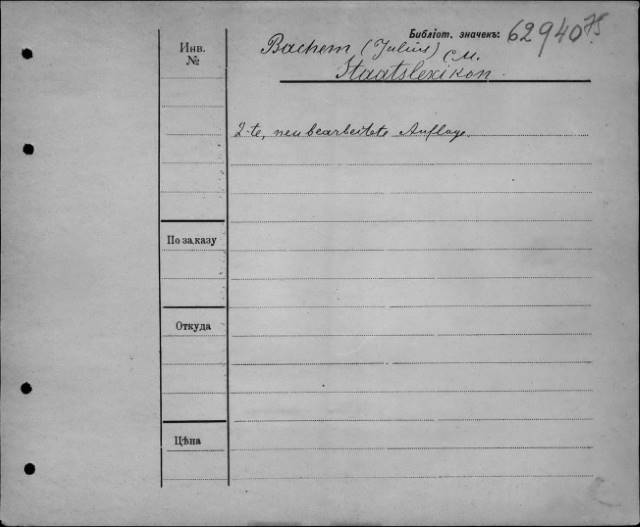 Библіот. значекъ: 62940 75
Инв. №
Bachem (Julius) См.
Staatslexikon.
2-te, neubearbeitete Auflage.
По заказу
Откуда
Цѣна